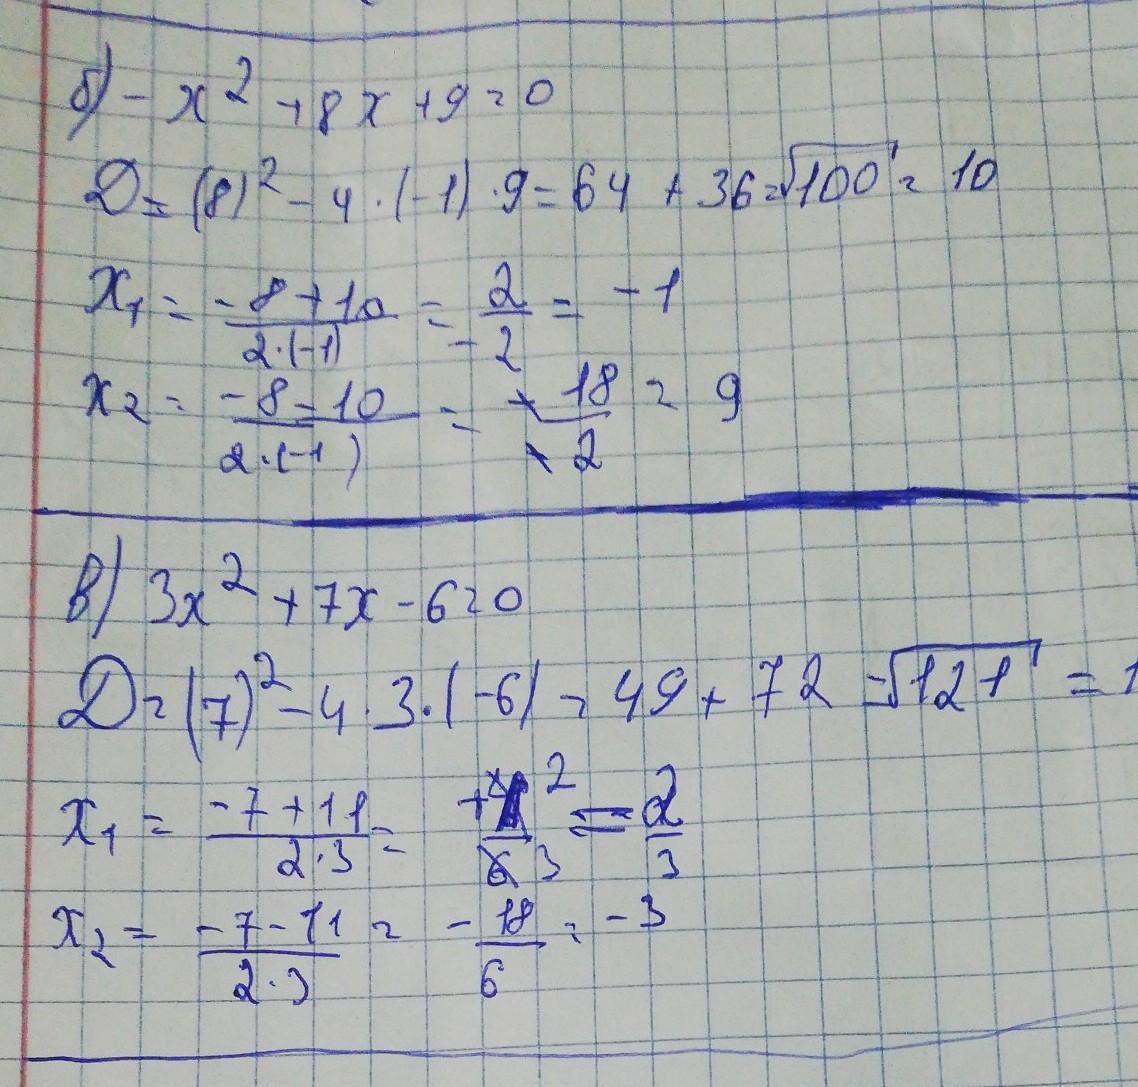 б) - x² + 8x + 9 = 0
D = (8)² - 4 · (-1) · 9 = 64 + 36 = √100 = 10
x₁ = (-8+10)/(2·(-1)) = 2/-2 = -1
x₂ = (-8-10)/(2·(-1)) = -18/-2 = 9
в) 3x² + 7x - 6 = 0
D = (7)² - 4 · 3 · (-6) = 49 + 72 = √121 = 1
x₁ = (-7+11)/(2·3) = +4 2/6 3 = 2/3
x₂ = (-7-11)/(2·3) = -18/6 = -3